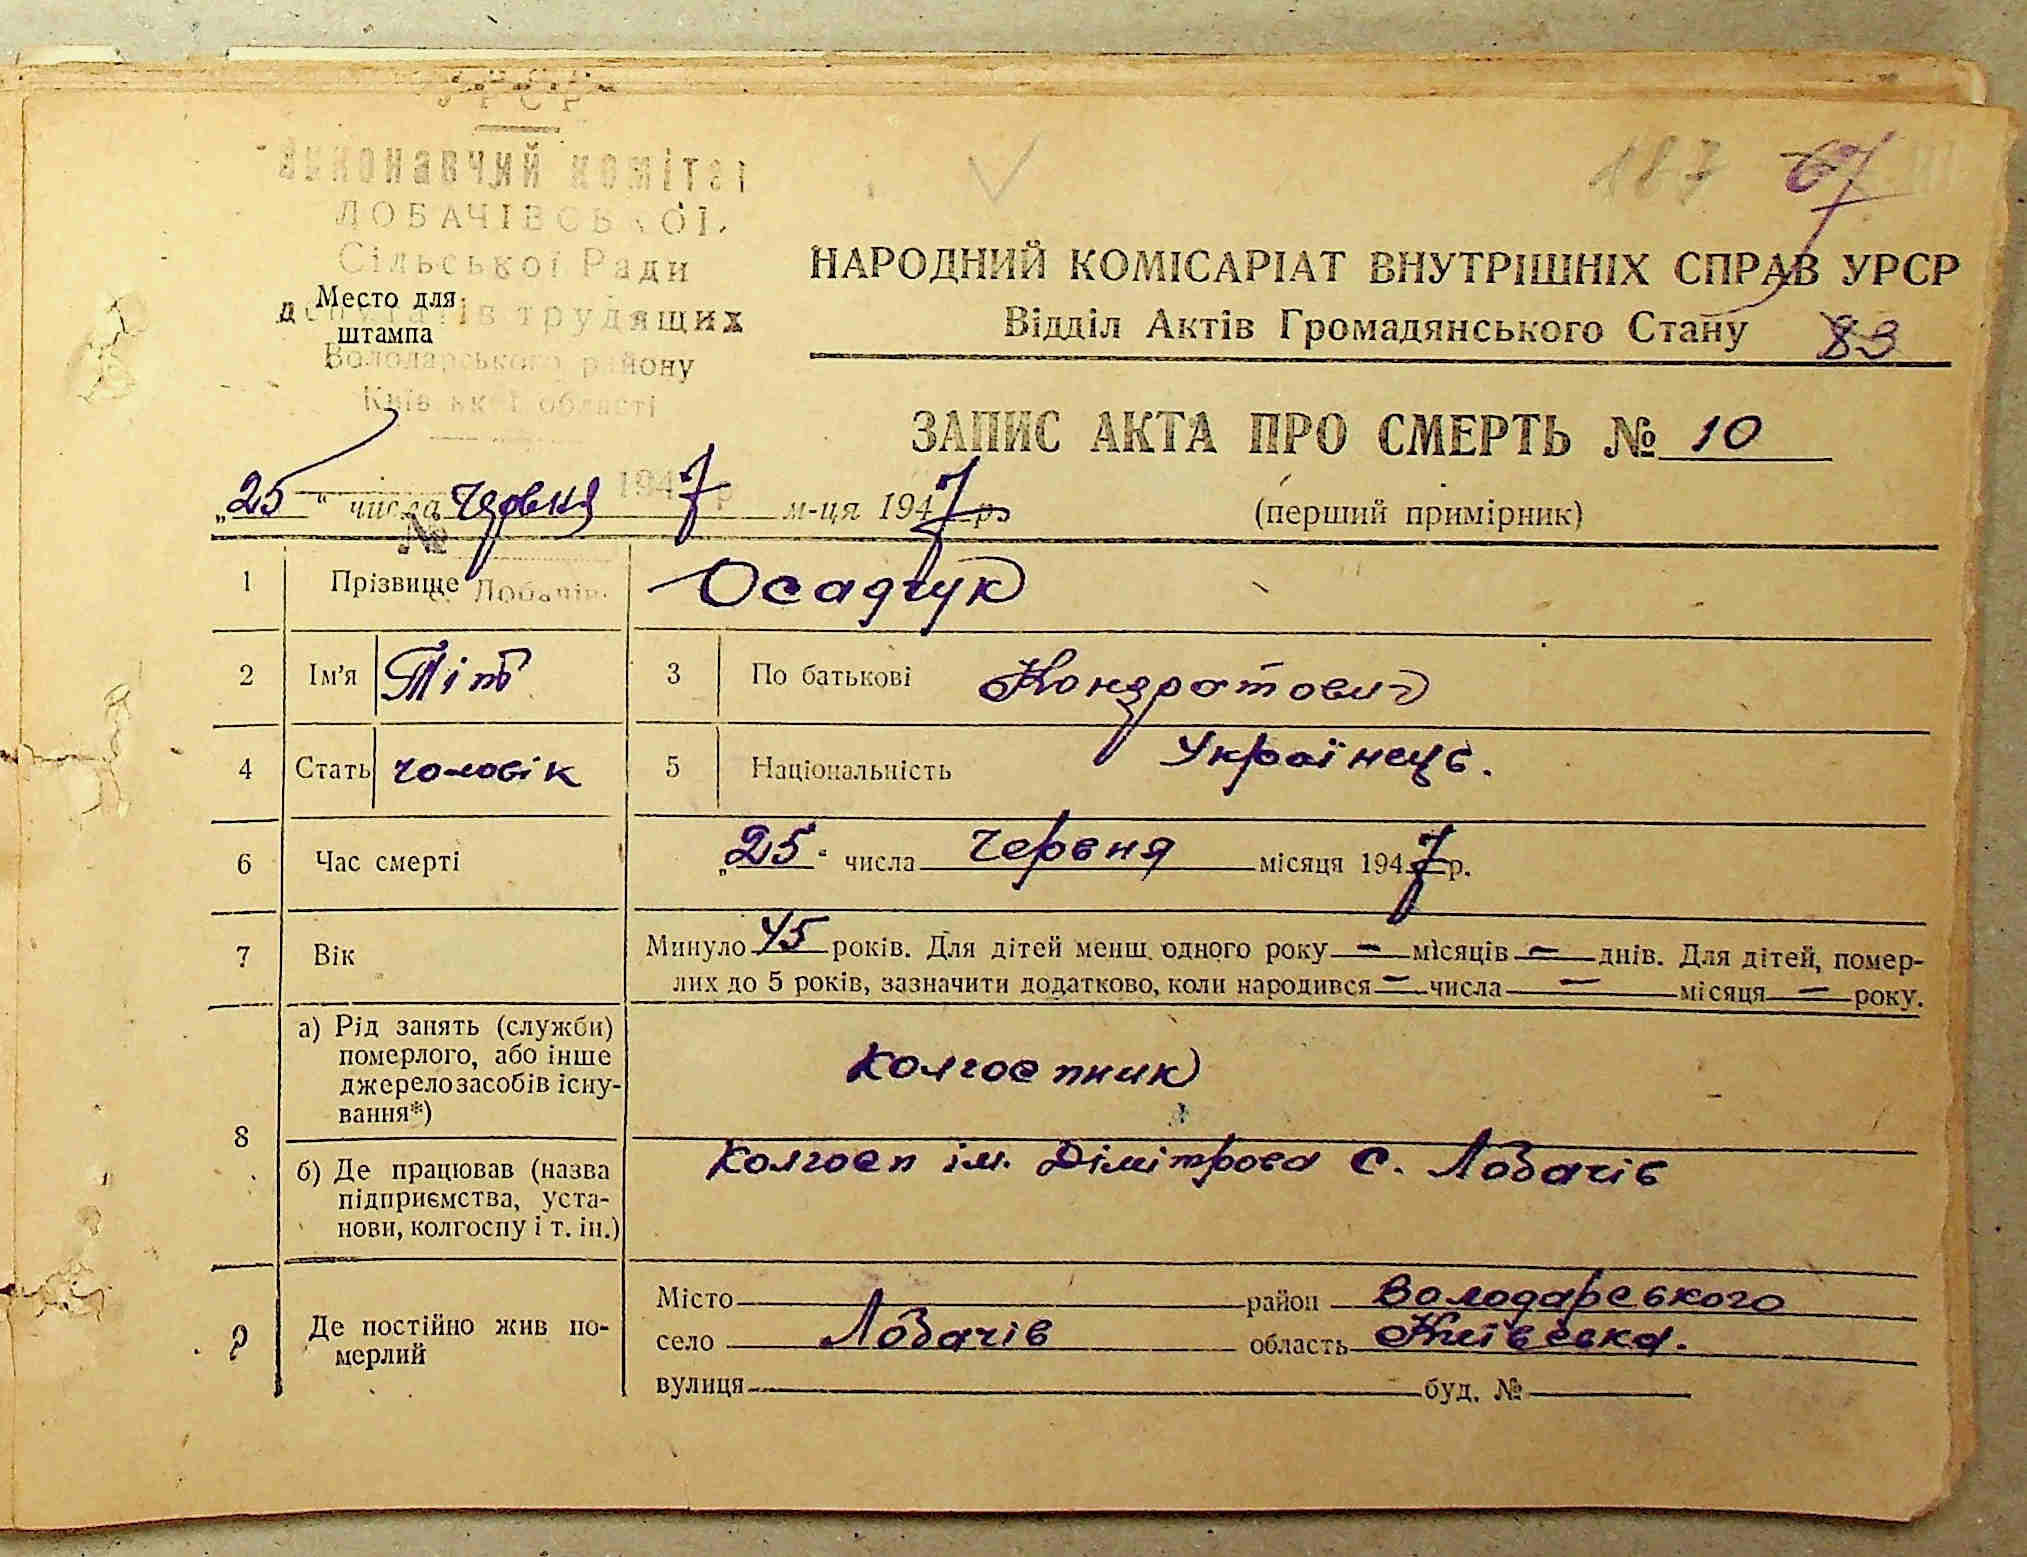 УРСР
Виконавчий комітет
ЛОБАЧІВСЬКОЇ
Сільської Ради
депутатів трудящих
Володарського району
Київської області
Место для
штампа
187 67
НАРОДНИЙ КОМІСАРІАТ ВНУТРІШНІХ СПРАВ УРСР
Відділ Актів Громадянського Стану 83
ЗАПИС АКТА ПРО СМЕРТЬ № 10
(перший примірник)
1947 р
„25“ числа червня м-ця 1947 р.
№
с. Лобачів.
1 Прізвище Осадчук
2 Ім'я Тіт 3 По батькові Кондратович
4 Стать чоловік 5 Національність Українець.
6 Час смерті „25“ числа Червня місяця 1947 р.
7 Вік Минуло 45 років. Для дітей менш одного року — місяців — днів. Для дітей, помер-
лих до 5 років, зазначити додатково, коли народився — числа — місяця — року.
8 а) Рід занять (служби)
померлого, або інше
джерело засобів існу-
вання*)
Колгоспник
б) Де працював (назва
підприємства, уста-
нови, колгоспу і т. ін.)
Колгосп ім. Дімітрова с. Лобачів
9 Де постійно жив по-
мерлий
Місто район Володарського
село Лобачів область Київська.
вулиця буд. №